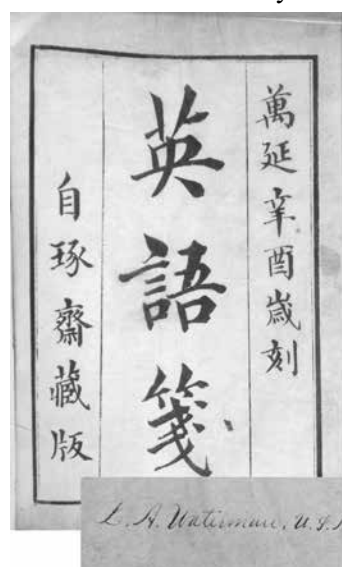 萬延辛酉歲刻
英語箋
自琢齋藏版
L. A. Waterman, U.S.